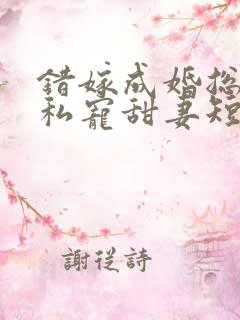 錯嫁成婚總
私寵甜妻短
謝從詩